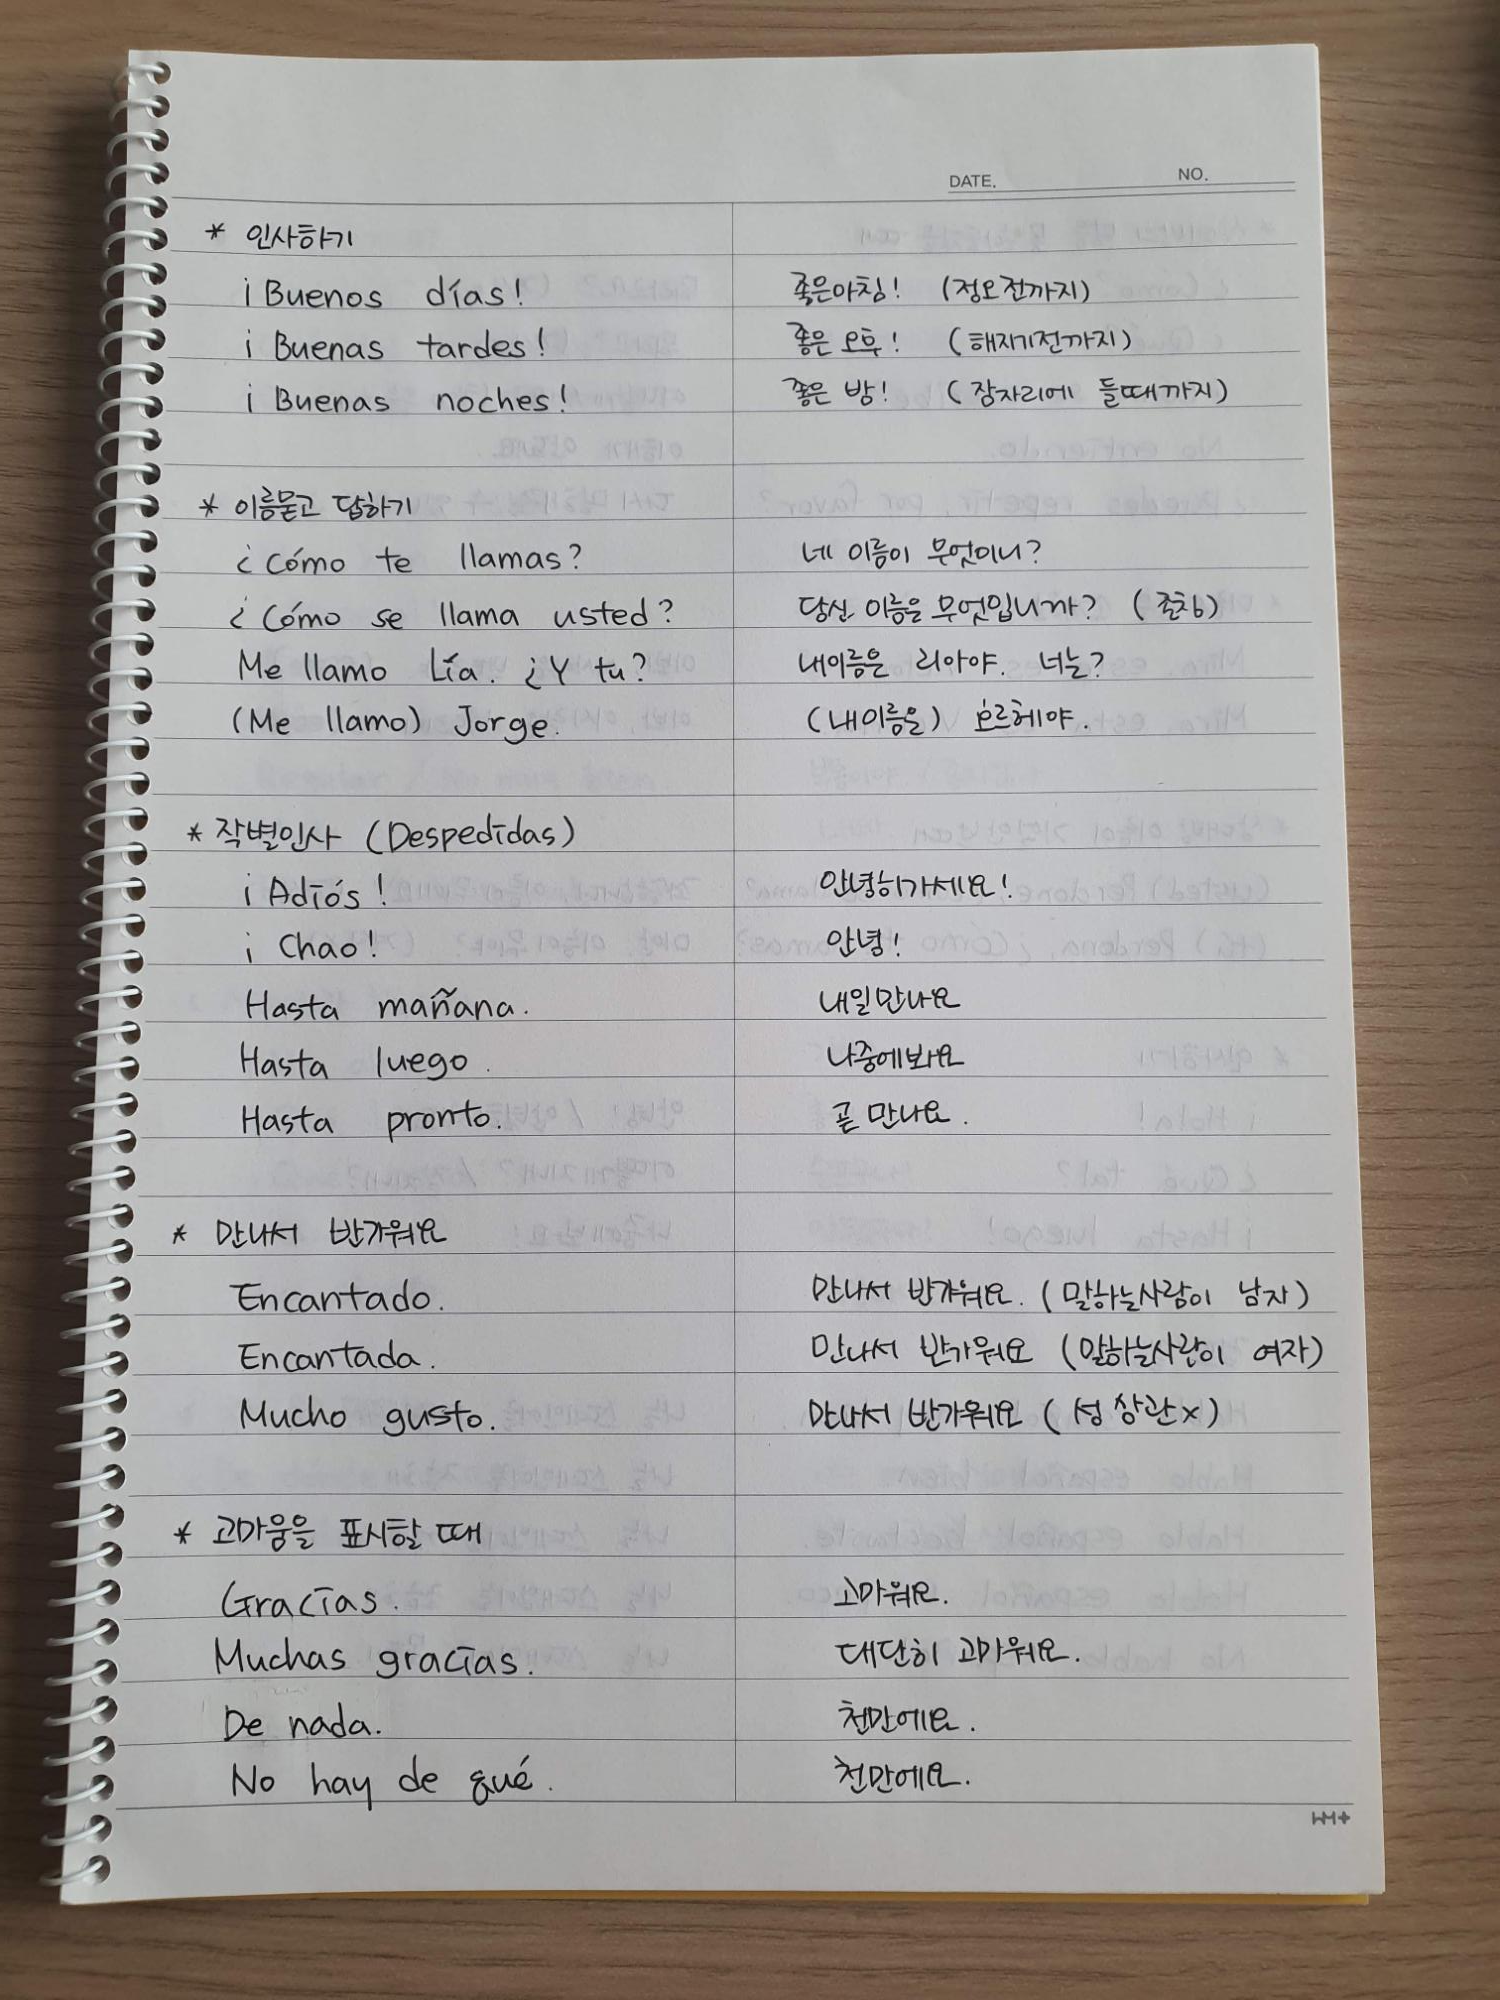 DATE. NO.
* 인사하기
¡Buenos días! 좋은아침! (정오전까지)
¡Buenas tardes! 좋은 오후! (해지기전까지)
¡Buenas noches! 좋은 밤! (잠자리에 들때까지)
* 이름묻고 답하기
¿Cómo te llamas? 네 이름이 무엇이니?
¿Cómo se llama usted? 당신 이름은 무엇입니까? (존칭)
Me llamo Lía. ¿Y tu? 내이름은 리아야. 너는?
(Me llamo) Jorge. (내이름은) 호르헤야.
* 작별인사 (Despedidas)
¡Adiós! 안녕히가세요!
¡Chao! 안녕!
Hasta mañana. 내일만나요
Hasta luego. 나중에봐요
Hasta pronto. 곧 만나요.
* 만나서 반가워요
Encantado. 만나서 반가워요. (말하는사람이 남자)
Encantada. 만나서 반가워요 (말하는사람이 여자)
Mucho gusto. 만나서 반가워요 (성 상관×)
* 고마움을 표시할 때
Gracias. 고마워요.
Muchas gracias. 대단히 고마워요.
De nada. 천만에요.
No hay de qué. 천만에요.